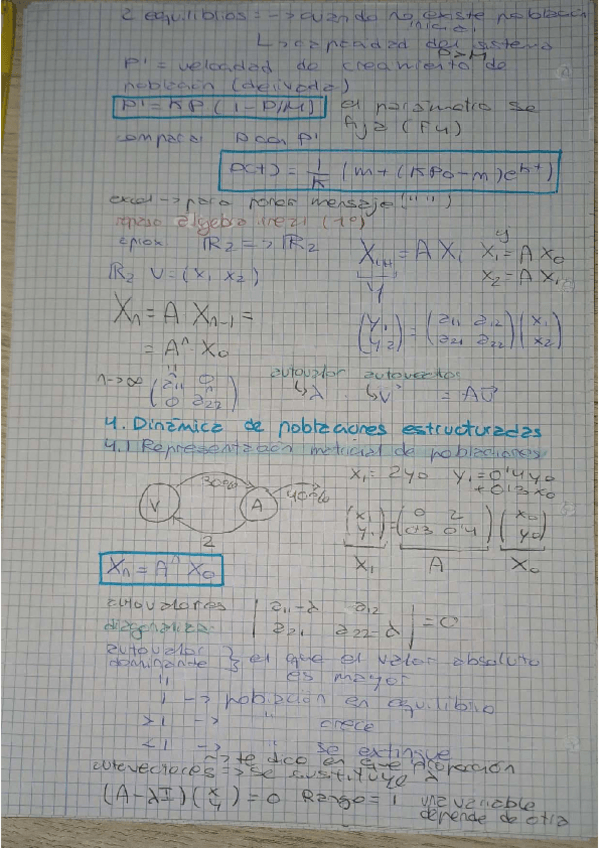 2 equilibrios: -> cuando no existe población
inicial
L> capacidad del sistema
P>M
P' = velocidad de crecimiento de
población (derivada)
P' = KP (1-P/M) el parámetro se
fija (F4)
comparar P con P'
P(t) = 1/K (m + (KP0 - m)e^kt)
excel -> para poner mensaje (" ")
repaso álgebra lineal (1º)
R2 => R2 Xi+1 = A Xi X1 = A X0
y
X2 = A X1
R2 V = (x1 x2)
Xn = A Xn-1 =
= A^n X0
(y1 y2) = (a11 a12 a21 a22) (x1 x2)
n->∞ (a11^n 0 0 a22^n) autovalor autovectores
L> λ L> v = Av
4. Dinámica de poblaciones estructuradas
4.1 Representación matricial de poblaciones
x1 = 2y0 y1 = 0'4y0
+ 0'3x0
V 30% A 40%
2
(x1 y1) = (0 2 0'3 0'4) (x0 y0)
X1 A X0
Xn = A^n X0
autovalores | a11-λ a12 | = 0
diagonalizar | a21 a22-λ |
autovalor } el que el valor absoluto
dominante } es mayor
" 1 -> población en equilibrio
>1 -> " crece
<1 -> " se extingue
-> te dice en que proporción
autovectores => se sustituye λ
(A-λI)(x y) = 0 Rango = 1 una variable
depende de otra